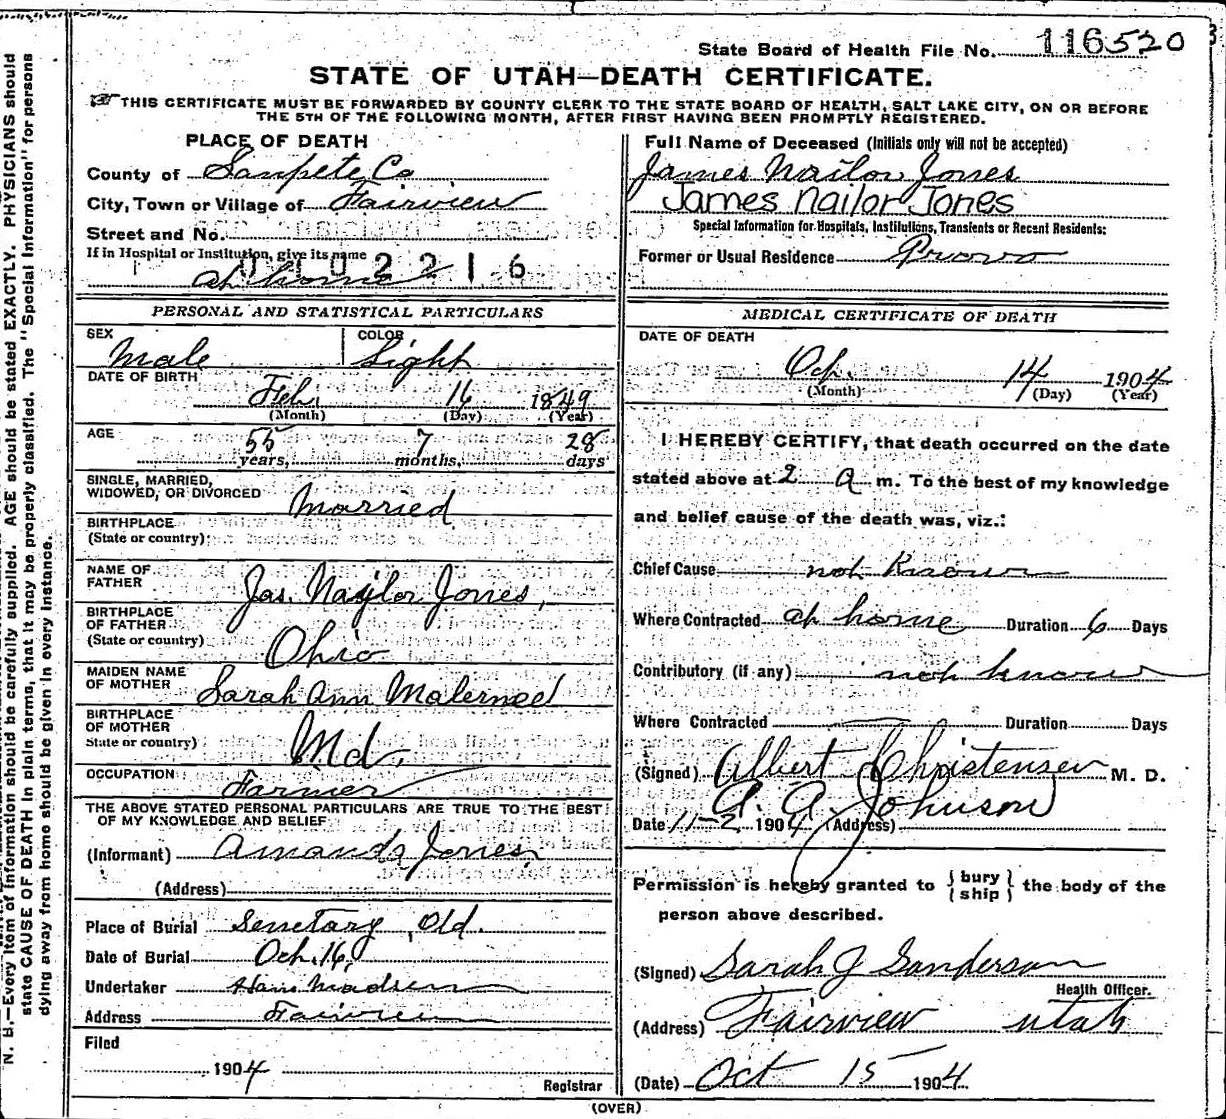 State Board of Health File No. 116520
STATE OF UTAH—DEATH CERTIFICATE.
THIS CERTIFICATE MUST BE FORWARDED BY COUNTY CLERK TO THE STATE BOARD OF HEALTH, SALT LAKE CITY, ON OR BEFORE
THE 5TH OF THE FOLLOWING MONTH, AFTER FIRST HAVING BEEN PROMPTLY REGISTERED.
PLACE OF DEATH
County of Sanpete Co
City, Town or Village of Fairview
Street and No.
If in Hospital or Institution, give its name
at home
0102216
Full Name of Deceased (Initials only will not be accepted)
James Nailor Jones
James Nailor Jones
Special Information for Hospitals, Institutions, Transients or Recent Residents:
Former or Usual Residence Provo
PERSONAL AND STATISTICAL PARTICULARS
SEX Male
COLOR Light
DATE OF BIRTH
Feb. 16 1849
(Month) (Day) (Year)
AGE 55 7 28
years, months, days
SINGLE, MARRIED,
WIDOWED, OR DIVORCED Married
BIRTHPLACE
(State or country)
NAME OF
FATHER Jas. Naylor Jones,
BIRTHPLACE
OF FATHER
(State or country) Ohio
MAIDEN NAME
OF MOTHER Sarah Ann Malerneel
BIRTHPLACE
OF MOTHER
State or country) Md.
OCCUPATION Farmer
THE ABOVE STATED PERSONAL PARTICULARS ARE TRUE TO THE BEST
OF MY KNOWLEDGE AND BELIEF
(Informant) Amanda Jones,
(Address)
Place of Burial Senetary, Old.
Date of Burial Oct. 16,
Undertaker Hans Madsen
Address Fairview
Filed
1904
Registrar
MEDICAL CERTIFICATE OF DEATH
DATE OF DEATH
Oct. 14 1904
(Month) (Day) (Year)
I HEREBY CERTIFY, that death occurred on the date
stated above at 2 A m. To the best of my knowledge
and belief cause of the death was, viz.:
Chief Cause not Known
Where Contracted at home Duration 6 Days
Contributory (if any) not know
Where Contracted Duration Days
(Signed) Albert Christensen M. D.
A. A. Johnson
Date 11-2 1904 (Address)
Permission is hereby granted to {bury
ship} the body of the
person above described.
(Signed) Sarah J Sanderson
Health Officer.
(Address) Fairview Utah
(Date) Oct 15 1904
(OVER)
N. B.—Every item of information should be carefully supplied. AGE should be stated EXACTLY. PHYSICIANS should
state CAUSE OF DEATH in plain terms, that it may be properly classified. The "Special Information" for persons
dying away from home should be given in every instance.